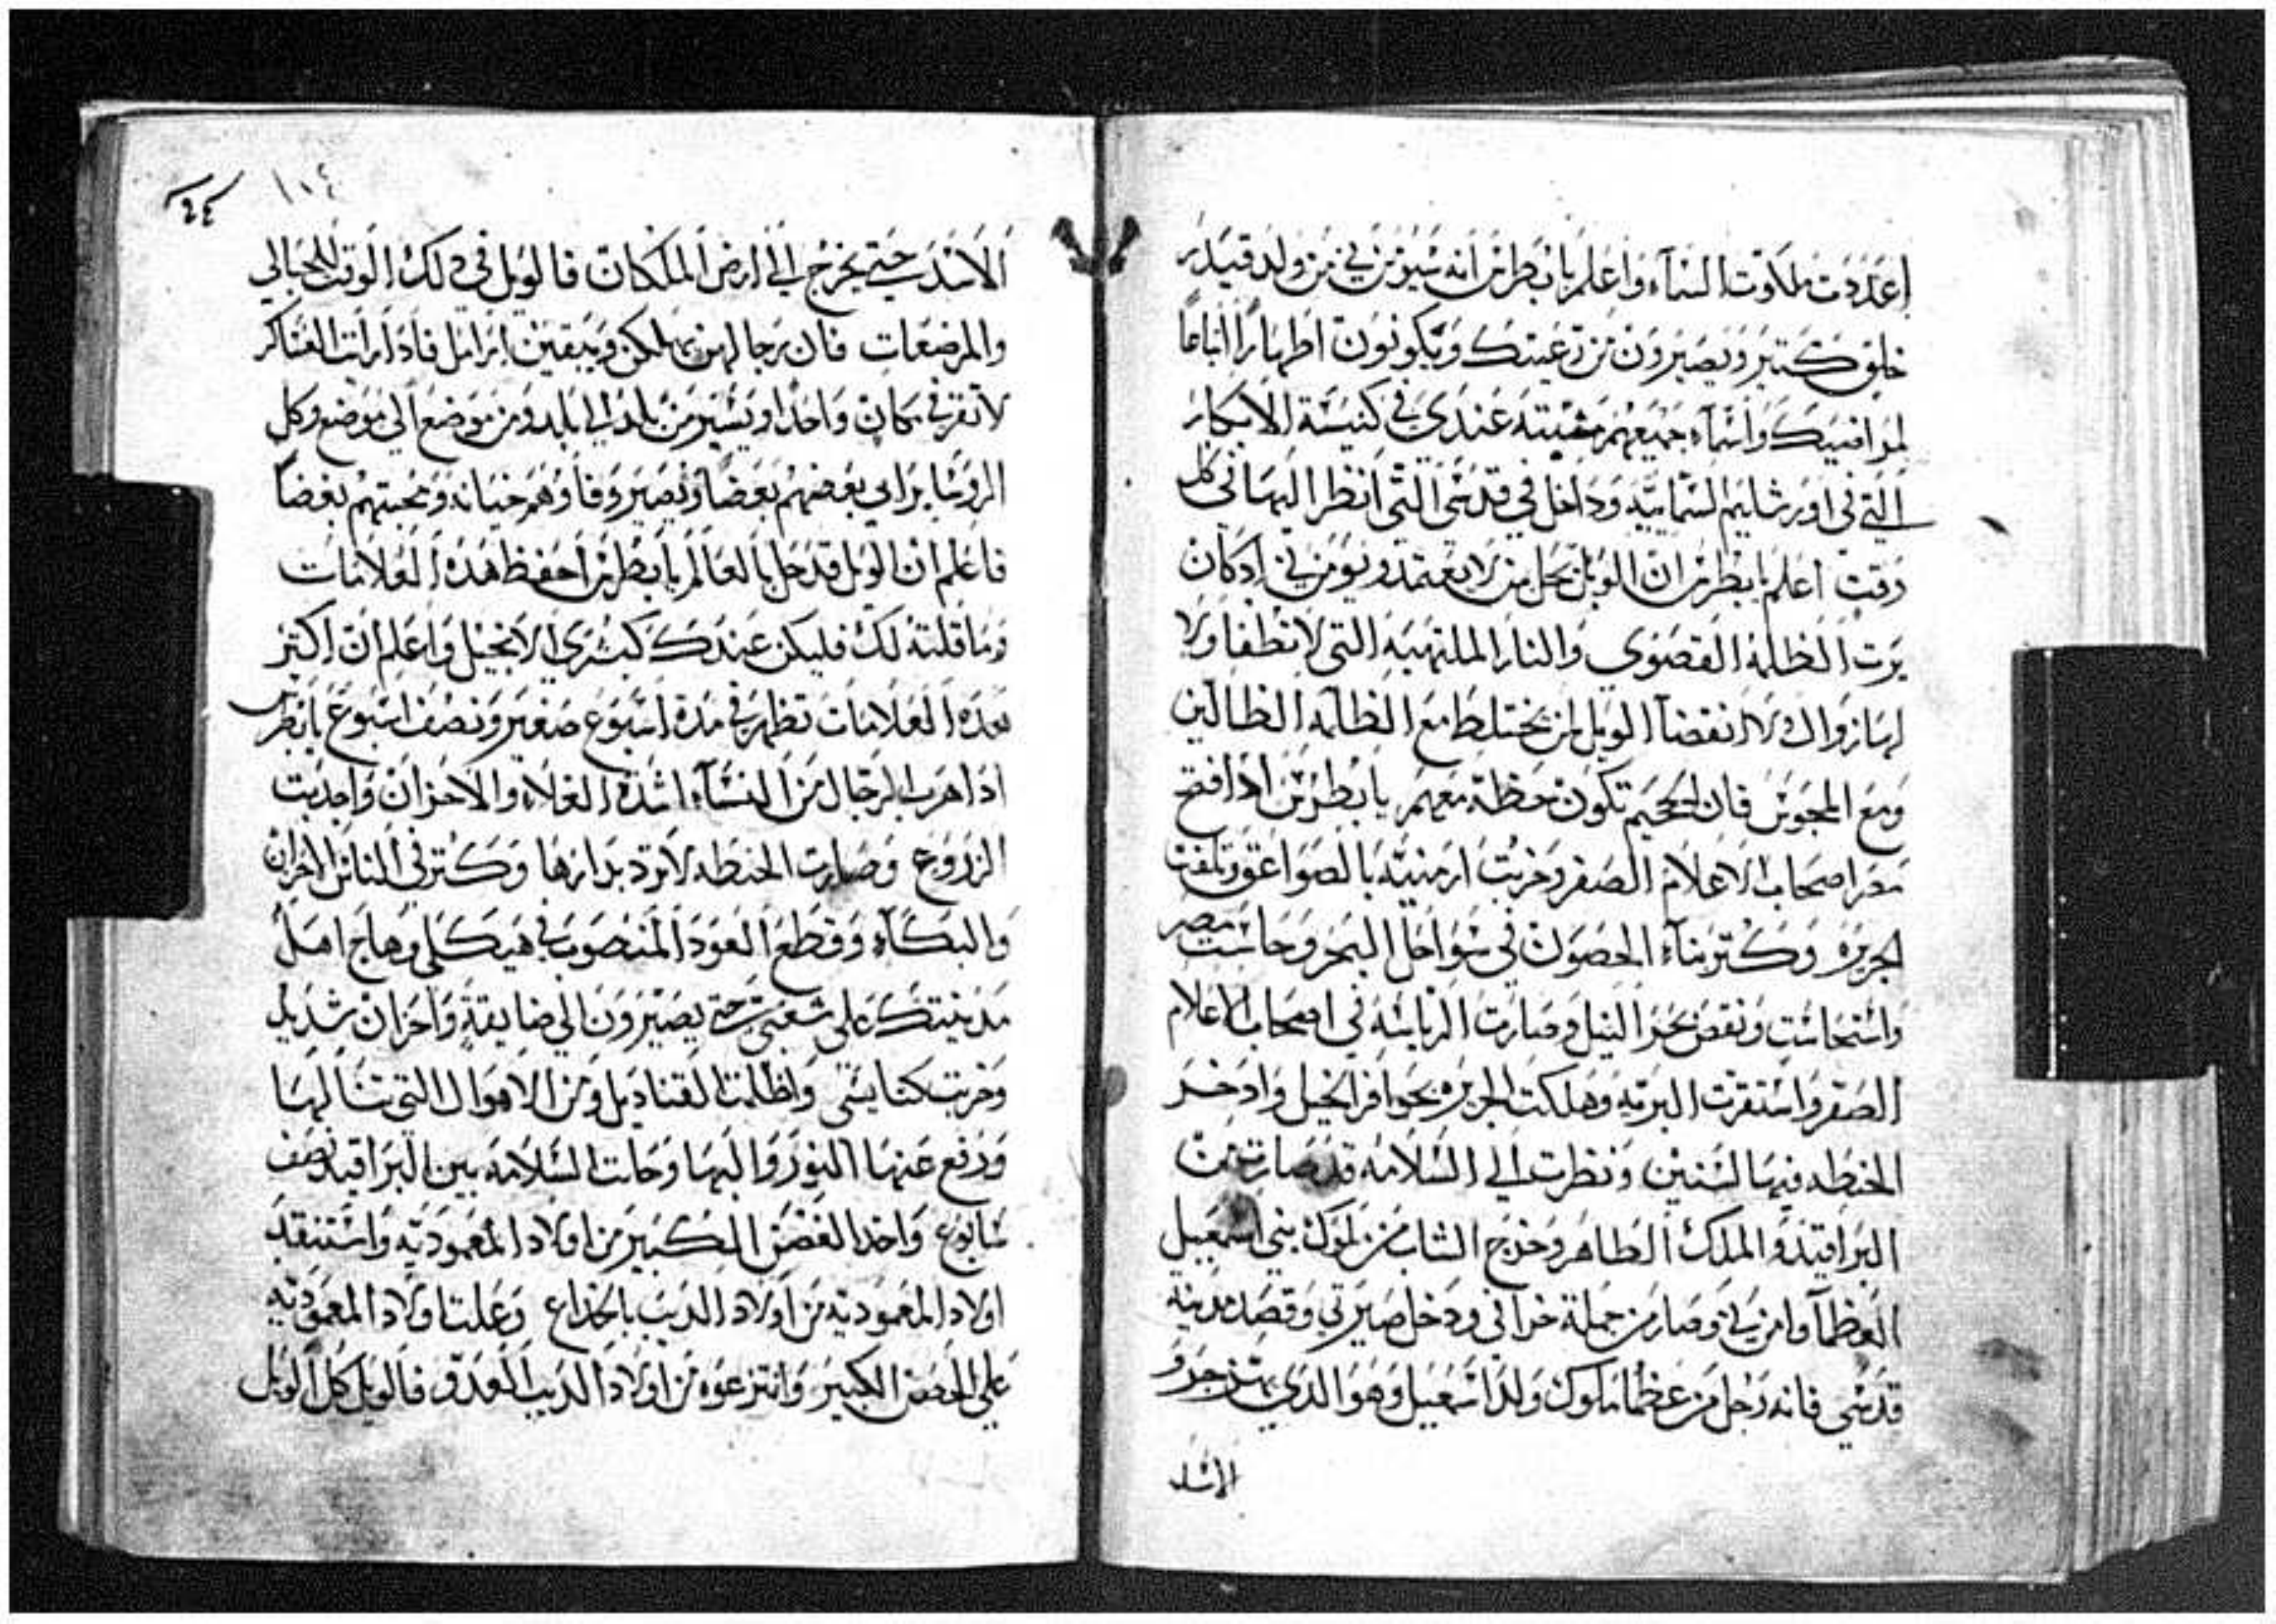 اعددت ملكوت السمآء واعلم يا بطرس انه سيومن بي من ولد قيدر
خلق كتير ويصيرون من رعيتك ويكونون اطهارا اتباعا
لمرافييك واسمآء جميعهم مثبته عندي في كنيسة الابكار
التي في اورشليم السماييه وداخل في قدسي التي انظر اليها في كل
وقت اعلم يا بطرس ان الويل يحل بمن لا يعتمد ويومن بي اذ كان
يرت الظلمة القصوى والنار الملتهبه التي لا تطفا ولا
لها زوال ولا انقضآ الويل لمن يختلط مع الظلمه الظالين
ومع المجوس فان الجحيم تكون حظة معهم يا بطرس اذا افتح
مصر اصحاب الاعلام الصفر وخربت ارمنيه بالصواعق وتلفت
الجزيره وكتر بنآء الحصون في سواحل البحر وحاشت مصر
واستحاشت ونقص بحر النيل وصارت الرياسه في اصحاب الاعلام
الصفر واستقرت البريه وهلكت الجزيره بحوافر الخيل وادخر
الحنطه فيها لسنين ونظرت الي السلامه قد صارت من
البراقيد والملك الطاهر وخرج الشاب من ملوك بني اسمعيل
العظمآ وامن بي وصار من جملة خرافي ودخل صيرتي وقصد مدينه
قدسي فانه رجل من عظما ملوك ولد اسمعيل وهو الدي جرو
الاسد
١٠٤
الاسد حتي يخرج الي ارض الملكات فالويل في دلك الوقت للحبالي
والمرضعات فان رجالهن يهلكن ويبقين ارامل فاذا رات العساكر
لا تقر في مكان واحد او تسير من بلد الي بلد ومن موضع الي موضع وكل
الروسا يرايي بعضهم بعضا ويصير وفاوهم خيانه ومحبتهم بغضا
فاعلم ان الويل قد حل بالعالم يا بطرس احفظ هده العلامات
وما قلته لك فليكن عندك كبشرى الانجيل واعلم ان اكتر
هده العلامات تظهر في مدة اسبوع صغير ونصف اسبوع يا بطرس
اذا هرب الرجال من النسآء لشدة الغلاء والاحزان واجدبت
الزروع وصارت الحنطه لا ترد بدارها وكتر في الناس الاحزان
والبكآء وقطع العود المنصوب في هيكلي وهاج اهل
مدينتك علي شعبي حتي يصيرون الي ضايقة واحزان شديد
وخربت كنايسي واظلمت القناديل ومن الاهوال التي تنالها
ورفع عنها النور والبها وحالت السلامه بين البراقيد نصف
سابوع واخد الغصن الكبير من اولاد المعموديه واستنقد
اولاد المعموديه من اولاد الديب بالخداع وعلت اولاد المعموديه
علي الحصن الكبير وانتزعوه من اولاد الديب العدو فالويل كل الويل